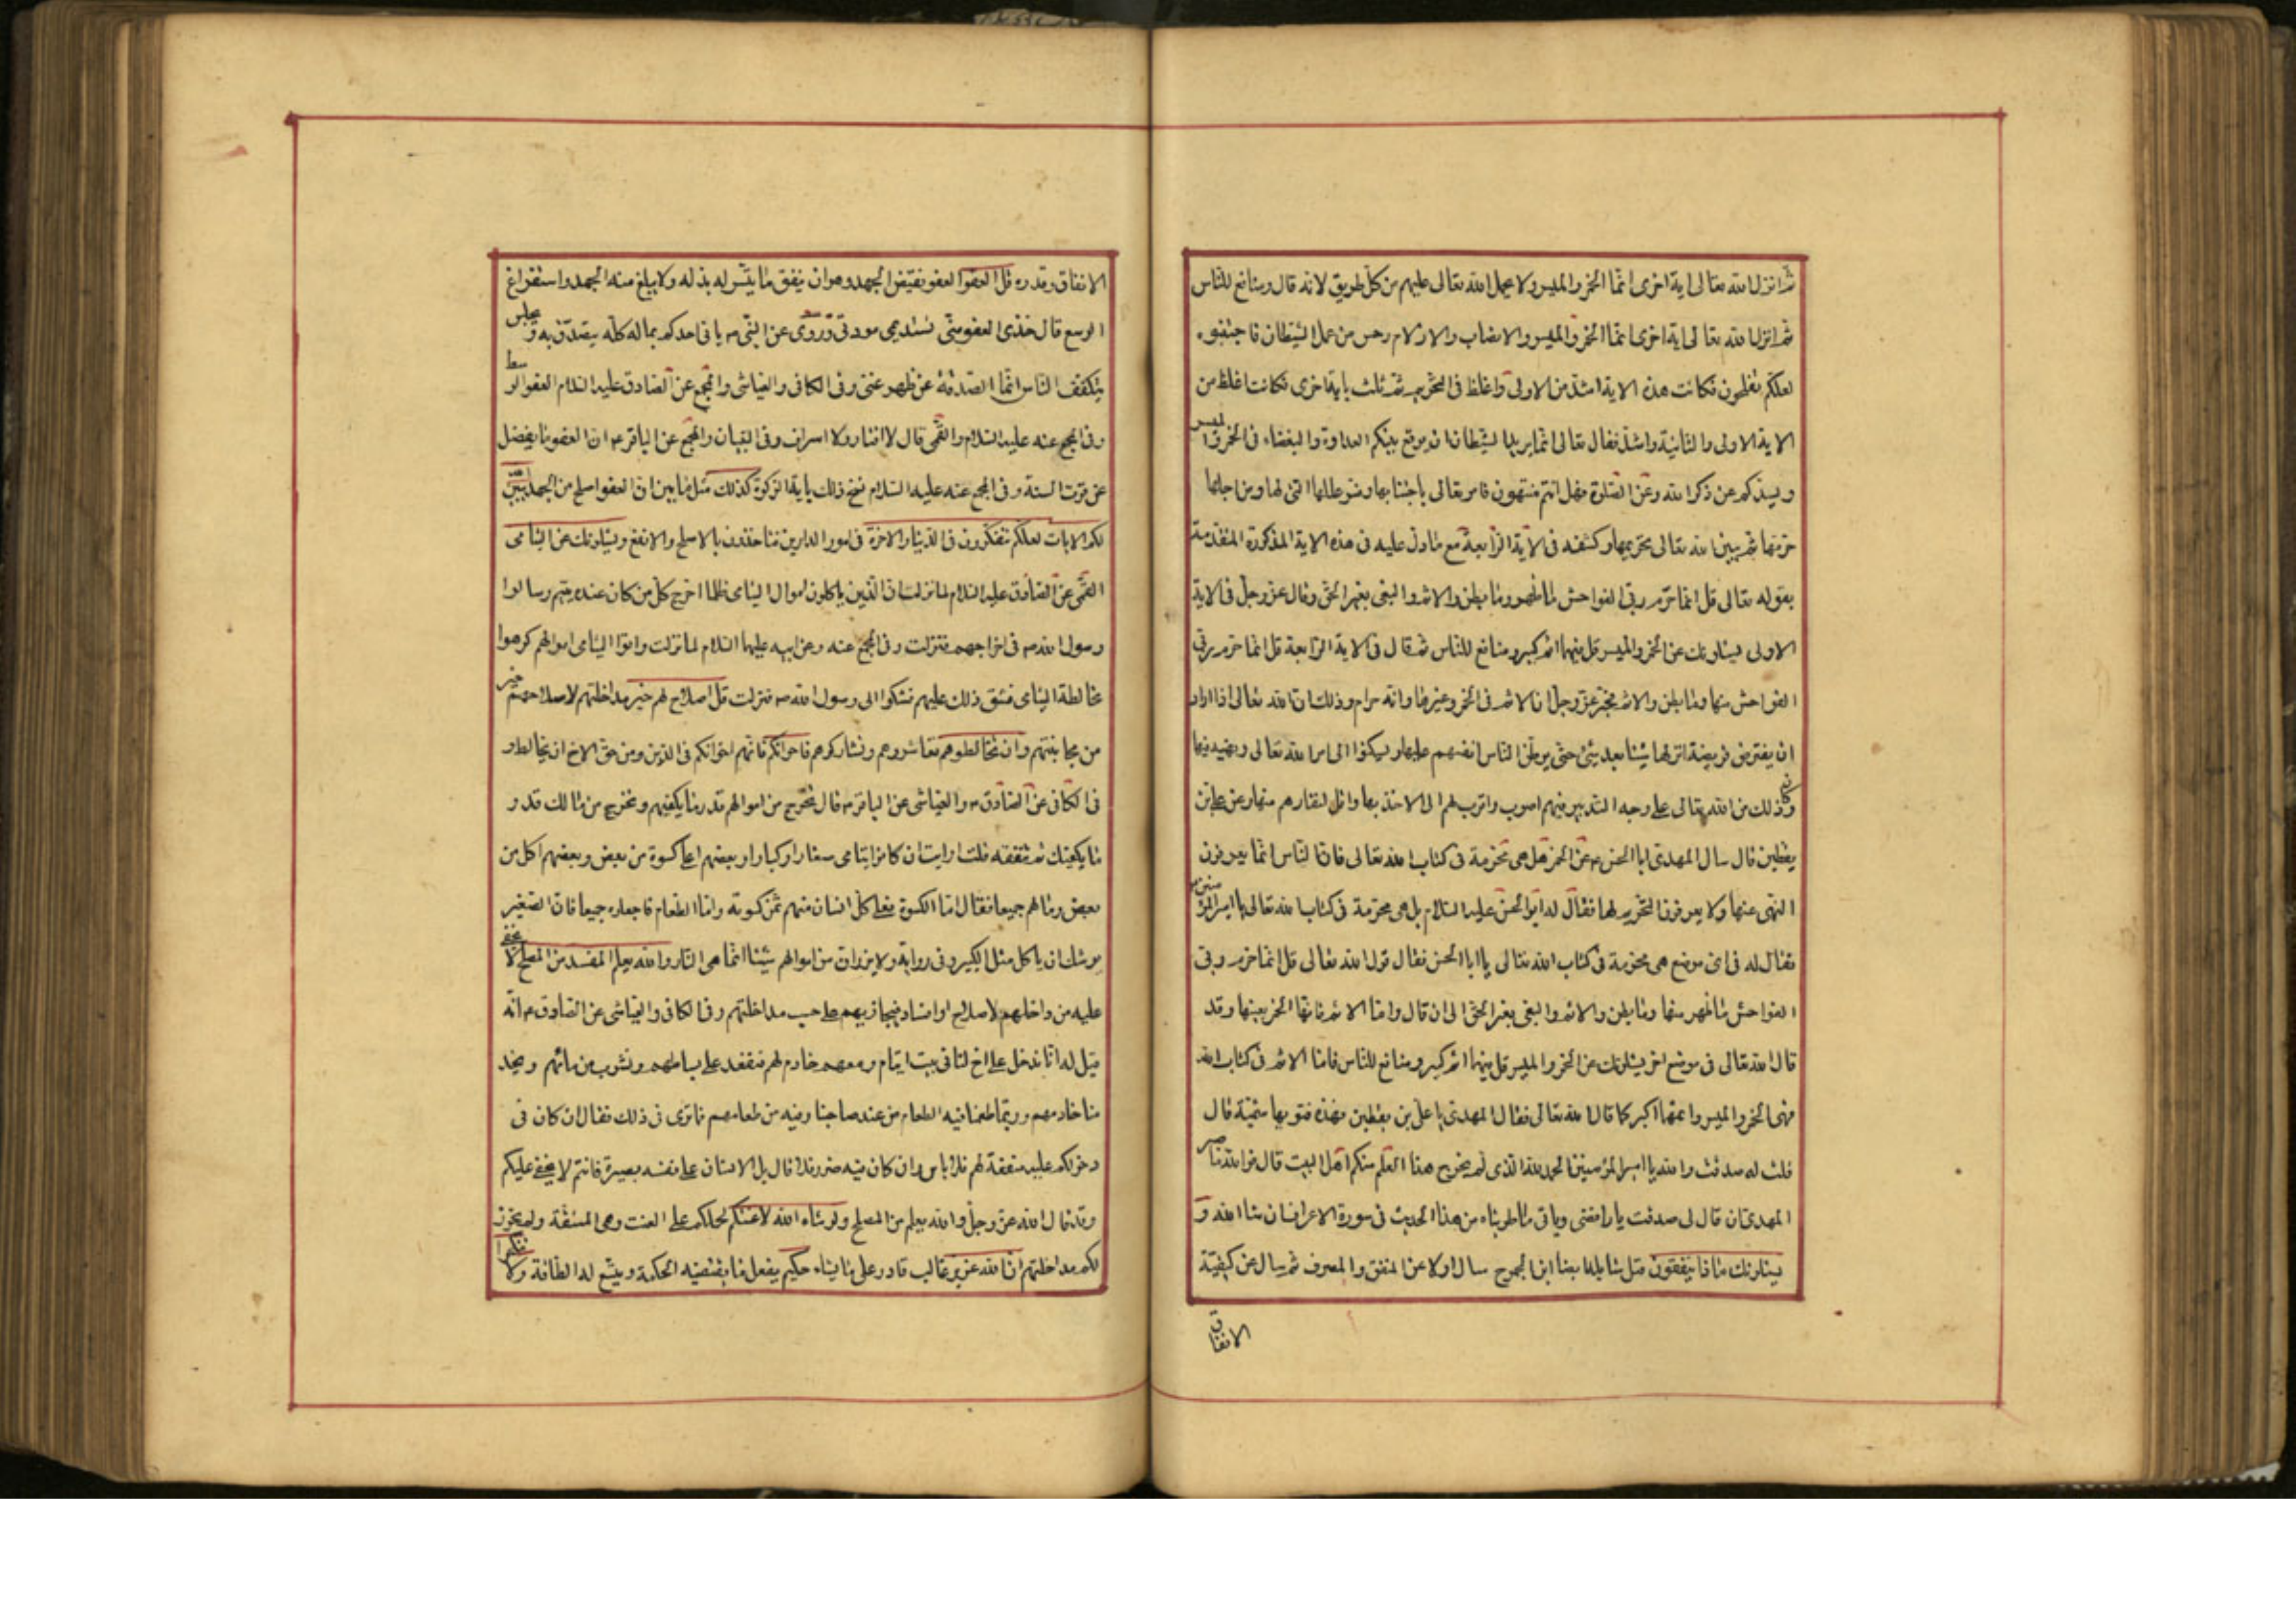 ثم انزل الله تعالى اية اخرى انما الخمر والميسر ولا يحمل الله تعالى عليهم من كل طريق لانه قال ومنافع للناس
ثم انزل الله تعالى اية اخرى انما الخمر والميسر والانصاب والازلام رجس من عمل الشيطان فاجتنبوه
لعلكم تفلحون فكانت هذه الاية اشد من الاولى واغلظ في التحريم ثم ثلث باية اخرى فكانت اغلظ من
الاية الاولى والثانية واشد فقال تعالى انما يريد الشيطان ان يوقع بينكم العداوة والبغضاء في الخمر والميسر
ويصدكم عن ذكر الله وعن الصلوة فهل انتم منتهون فامر تعالى باجتنابها وفسر عللها التي لها ومن اجلها
حرمها ثم بين الله تعالى تحريمها وكشفه في الاية الرابعة مع ما دل عليه في هذه الاية المذكورة المتقدمة
بقوله تعالى قل انما حرم ربي الفواحش ما ظهر وما بطن والاثم والبغي بغير الحق وقال عز وجل في الاية
الاولى يسئلونك عن الخمر والميسر قل فيهما اثم كبير ومنافع للناس ثم قال في الاية الرابعة قل انما حرم ربي
الفواحش منها وما بطن والاثم فخبر عز وجل ان الاثم في الخمر وغيرها وانه حرام وذلك ان الله تعالى اذا اراد
ان يفترض فريضة انزلها شيئا بعد شيء حتى يوطن الناس انفسهم عليها ويسكنوا الى امر الله تعالى ونهيه فيها
وكان ذلك من الله تعالى على وجه التدبير فيهم اصوب واقرب لهم الى الاخذ بها واقل لنفارهم منها وعن علي بن
يقطين قال سال المهدي ابا الحسن م عن الخمر هل هي محرمة في كتاب الله تعالى فان الناس انما يعرفون
النهي عنها ولا يعرفون التحريم لها فقال له ابو الحسن عليه السلام بل هي محرمة في كتاب الله تعالى يا امير المؤمنين
فقال له في اي موضع هي محرمة في كتاب الله تعالى يا ابا الحسن فقال قول الله تعالى قل انما حرم ربي
الفواحش ما ظهر منها وما بطن والاثم والبغي بغير الحق الى ان قال واما الاثم فانها الخمر بعينها وقد
قال الله تعالى في موضع اخر يسئلونك عن الخمر والميسر قل فيهما اثم كبير ومنافع للناس فاما الاثم في كتاب الله
فهي الخمر والميسر واثمهما اكبر كما قال الله تعالى فقال المهدي يا علي بن يقطين فهذه فتوى هاشمية قال
قلت له صدقت والله يا امير المؤمنين الحمد لله الذي لم يخرج هذا العلم منكم اهل البيت قال فوالله ما صبر
المهدي ان قال لي صدقت يا رافضي وياتي ما طريناه من هذا الحديث في سورة الاعراف ان شاء الله و
يسئلونك ماذا ينفقون قيل سائله ايضا ابن الجموح سال اولا عن المنفق والمصرف ثم سال عن كيفية
الانفاق
الانفاق وقدره قل العفو العفو نقيض الجهد وهو ان ينفق ما يتيسر له بذله ولا يبلغ منه الجهد واستفراغ
الوسع قال خذي العفو مني تستديمي مودتي وروي عن النبي ص ياتي احدكم بماله كله يتصدق به ويجلس
يتكفف الناس انما الصدقة عن ظهر غنى وفي الكافي والعياشي والمجمع عن الصادق عليه السلام العفو الوسط
وفي المجمع عنه عليه السلام والقمي قال لا اقتار ولا اسراف وفي التبيان والمجمع عن الباقر م ان العفو ما يفضل
عن قوت السنة وفي المجمع عنه عليه السلام نسخ ذلك باية الزكوة كذلك مثل ما بين ان العفو اصلح من الجهد يبين الله
لكم الايات لعلكم تتفكرون في الدنيا والاخرة في امور الدارين فتاخذون بالاصلح والانفع ويسئلونك عن اليتامى
القمي عن الصادق عليه السلام لما نزلت ان الذين ياكلون اموال اليتامى ظلما اخرج كل من كان عنده يتيم وسالوا
رسول الله ص في اخراجهم فنزلت وفي المجمع عنه وعن ابيه عليهما السلام لما نزلت واتوا اليتامى اموالهم كرهوا
مخالطة اليتامى فشق ذلك عليهم فشكوا الى رسول الله ص فنزلت قل اصلاح لهم خير مداخلتهم لاصلاحهم خير
من مجانبتهم وان تخالطوهم تعاشروهم وتشاركوهم فاخوانكم فانهم اخوانكم في الدين ومن حق الاخ ان يخالط و
في الكافي عن الصادق م والعياشي عن الباقر م قال تخرج من اموالهم قدر ما يكفيهم وتخرج من مالك قدر
ما يكفيك ثم تنفقه قلت ارايت ان كانوا يتامى صغارا وكبارا وبعضهم اعلى كسوة من بعض وبعضهم اكل من
بعض ومالهم جميعا فقال اما الكسوة فعلى كل انسان منهم ثمن كسوته واما الطعام فاجعلوه جميعا فان الصغير
يوشك ان ياكل مثل الكبير وفي رواية ولا يرزان من اموالهم شيئا انما هي النار والله يعلم المفسد من المصلح لا يخفى
عليه من داخلهم لاصلاح او افساد فيجازيهم على حسب مداخلتهم وفي الكافي والعياشي عن الصادق م انه
قيل له انا ندخل على اخ لنا في بيت ايتام ومعهم خادم لهم فنقعد على بساطهم ونشرب من مائهم ويخد
منا خادمهم وربما طعمنا فيه الطعام من عند صاحبنا وفيه من طعامهم فما ترى في ذلك فقال ان كان في
دخولكم عليه منفعة لهم فلا باس وان كان فيه ضرر فلا قال بل الانسان على نفسه بصيرة فانتم لا يخفى عليكم
وقد قال الله عز وجل والله يعلم من المصلح ولو شاء الله لاعنتكم لحملكم على العنت وهي المشقة ولم يجوز
لكم مداخلتهم ان الله عزيز غالب قادر على ما يشاء حكيم يفعل ما يقتضيه الحكمة ويتسع له الطاقة ولا تنكحوا